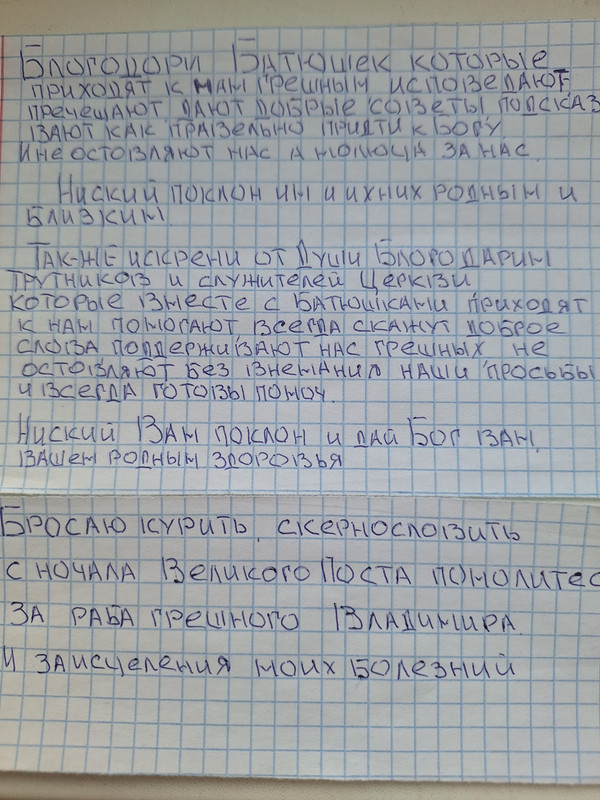 Благодори Батюшек которые
приходят к нам грешным исповедают
пречещают, дают добрые советы подсказ
вают как правельно придти к Богу.
И не остовляют нас а молюца за нас.
Ниский поклон им и ихних родным и
близким.
Так-же искрени от Души Благодарим
трутников и служителей Церкви
которые вместе с Батюшками приходят
к нам помогают всегда скажут доброе
слова поддерживают нас грешных не
остовляют без внемания наши просьбы
и всегда готовы помоч.
Ниский Вам поклон и дай Бог вам,
вашем родным здоровья
Бросаю курить, скернословить
с ночала Великого Поста помолитес
за раба грешного Владимира.
И за исцеления моих болезний